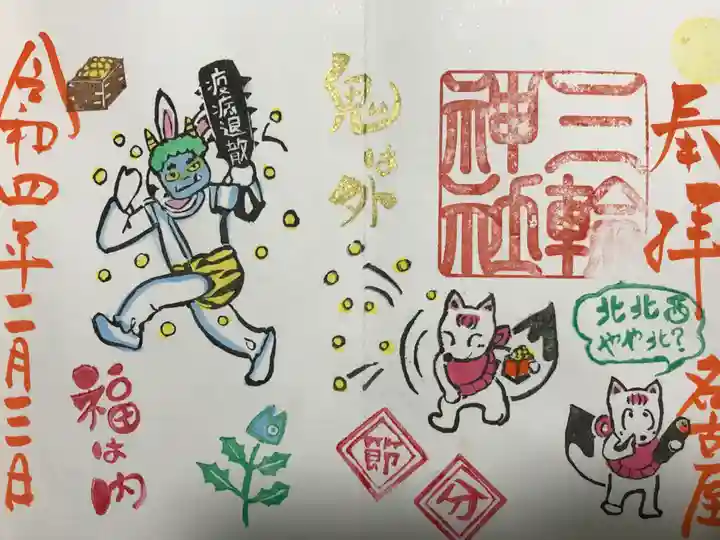 奉拝
名古屋
三輪
神社
北北西
やや北?
鬼は外
節
分
疫病退散
福は内
令和四年二月三日